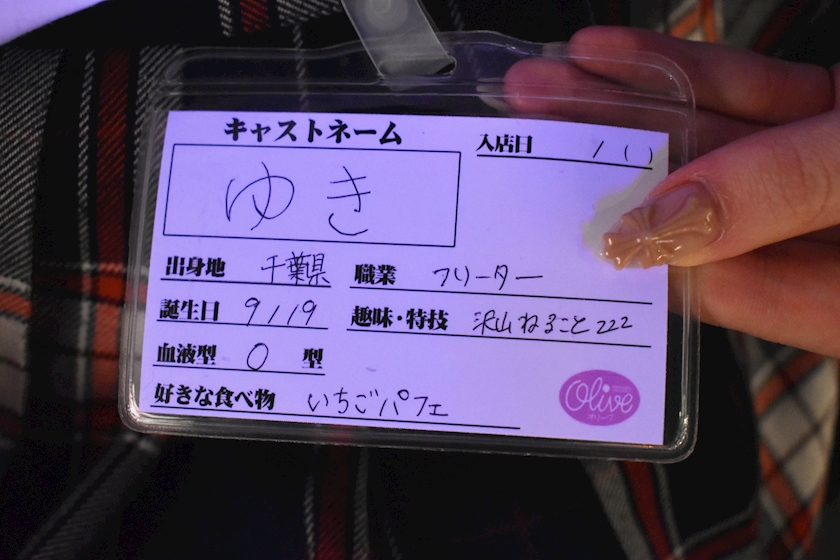 キャストネーム
ゆき
入店日 / 11
出身地 千葉県
職業 フリーター
誕生日 9/19
趣味・特技 沢山ねること zzz
血液型 O 型
好きな食べ物 いちごパフェ
Olive
オリーブ